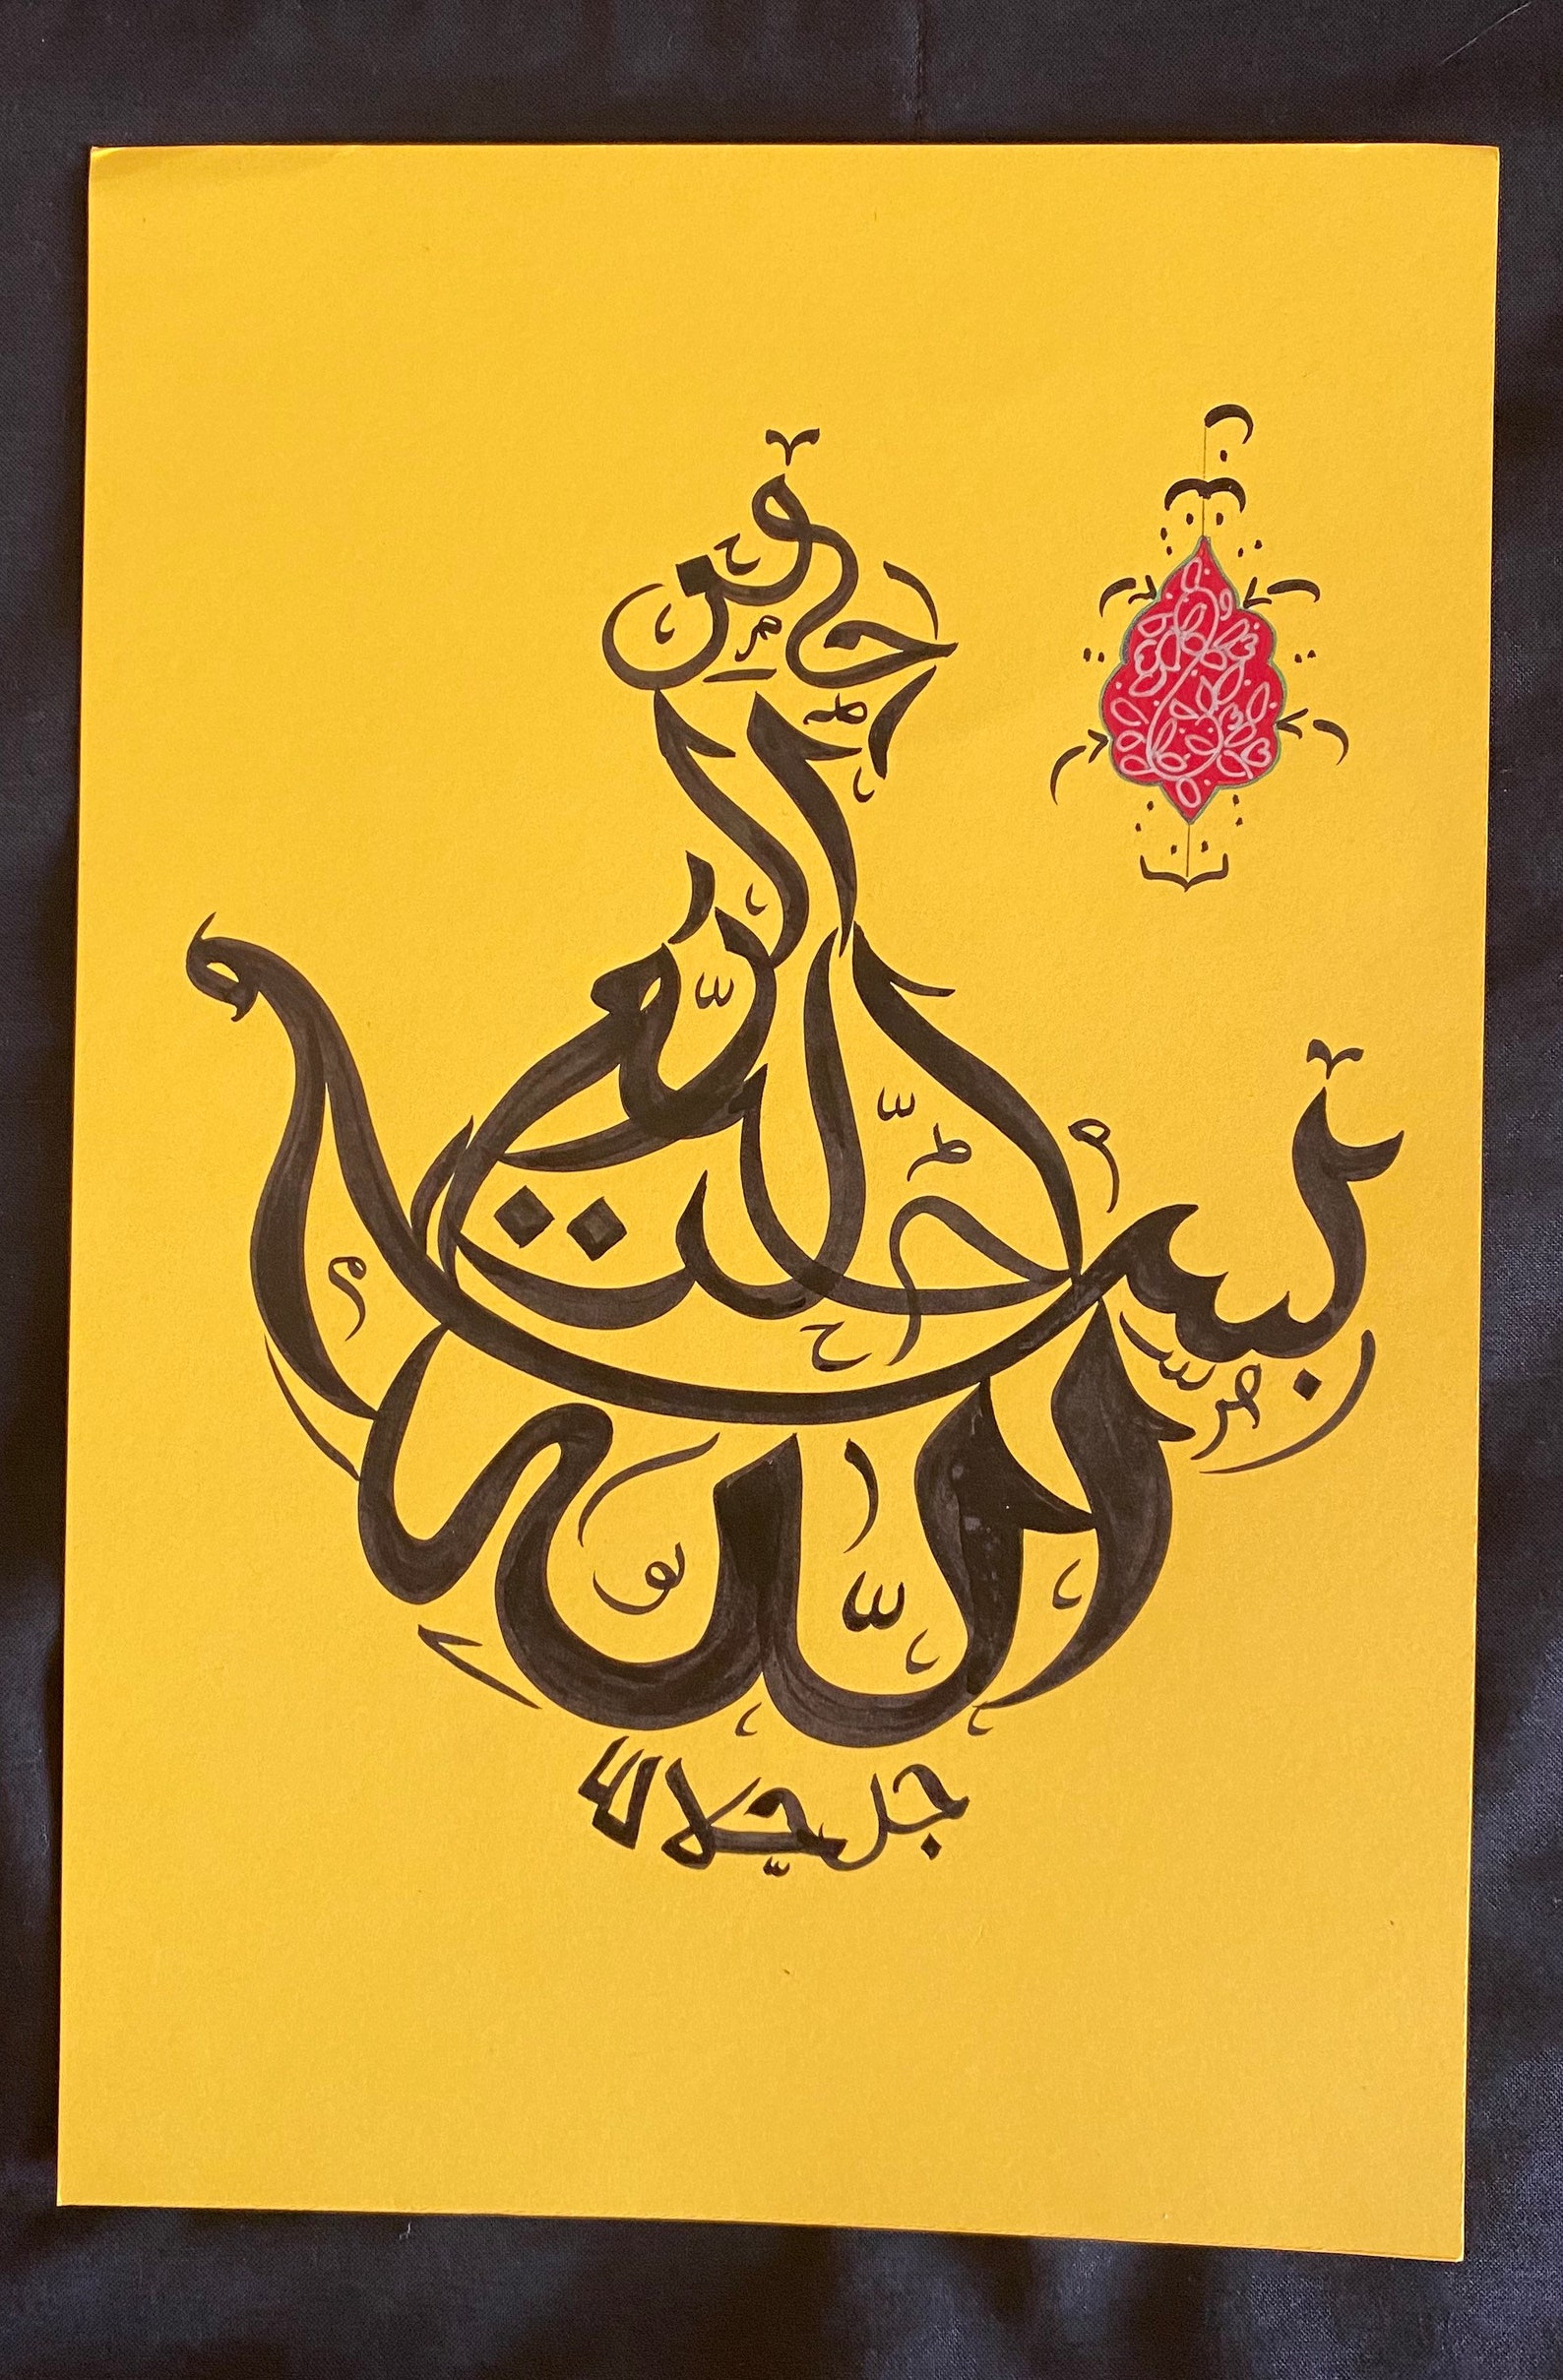 بسم الله الرحمن الرحيم
جل جلاله